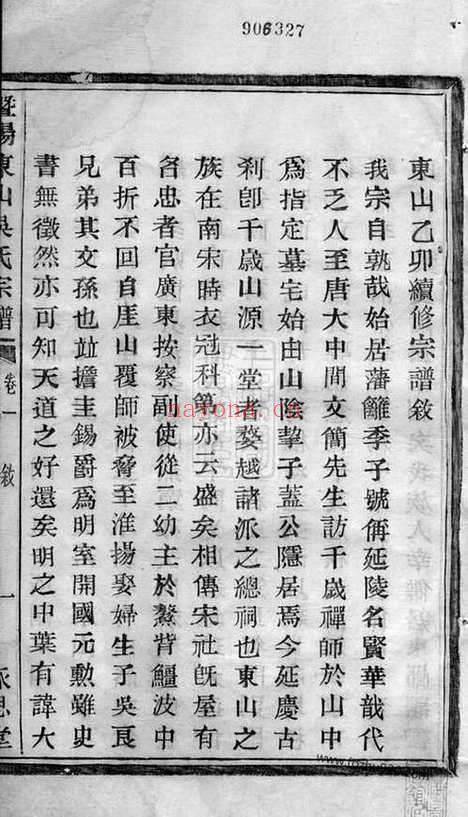 906327
東山乙卯續修宗譜敘
我宗自孰哉始居藩籬季子號偁延陵名賢華戠代
不乏人至唐大中間文簡先生訪千歲禪師於山中
爲指定墓宅始由山陰挈子蓋公隱居焉今延慶古
刹卽千歲山源一堂者婺越諸派之總祠也東山之
族在南宋時衣冠科第亦云盛矣相傳宋社旣屋有
名忠者官廣東按察副使從二幼主於鰲背鱷波中
百折不回自厓山覆師被脅至淮揚娶婦生子吳良
兄弟其文孫也竝擔圭錫爵爲明室開國元勳雖史
書無徵然亦可知天道之好還矣明之中葉有諱大
暨陽東山吳氏宗譜
卷一
敘
一
永思堂
nayona.cn